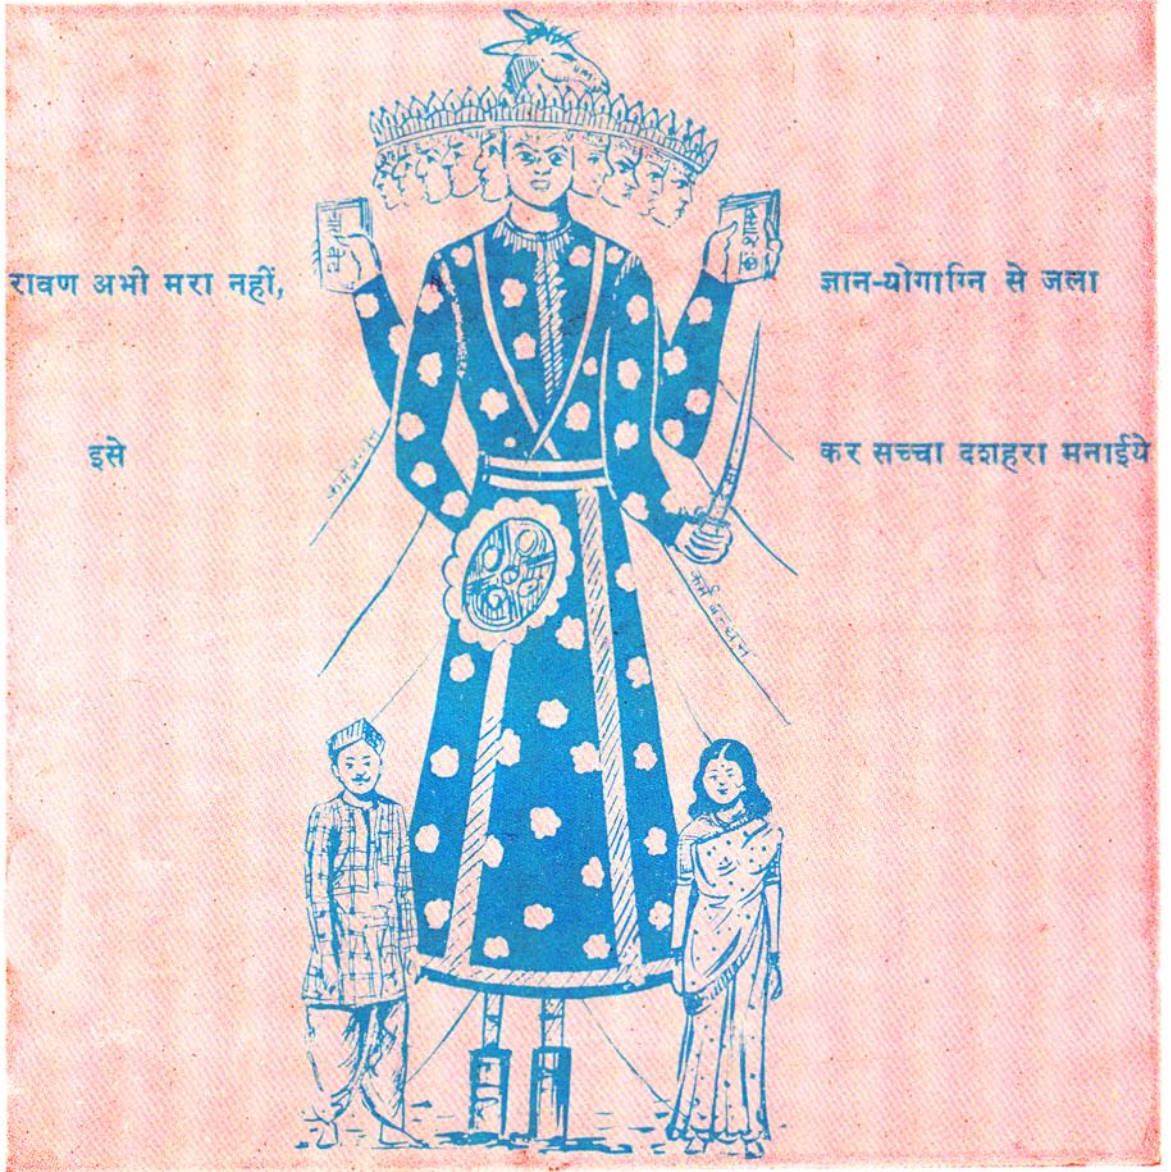 रावण अभी मरा नहीं,
ज्ञान-योगाग्नि से जला
इसे
कर सच्चा दशहरा मनाईये
वेद
शास्त्र
कर्म बन्धन
कर्म बन्धन